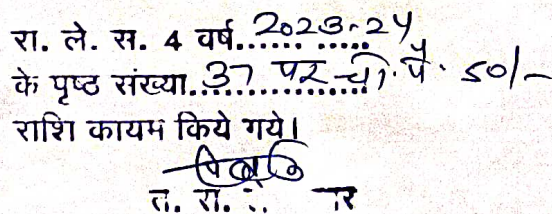 रा. ले. स. 4 वर्ष..2023-24
के पृष्ठ संख्या..37 पर ची. पै. 50/-
राशि कायम किये गये।
त. रा.